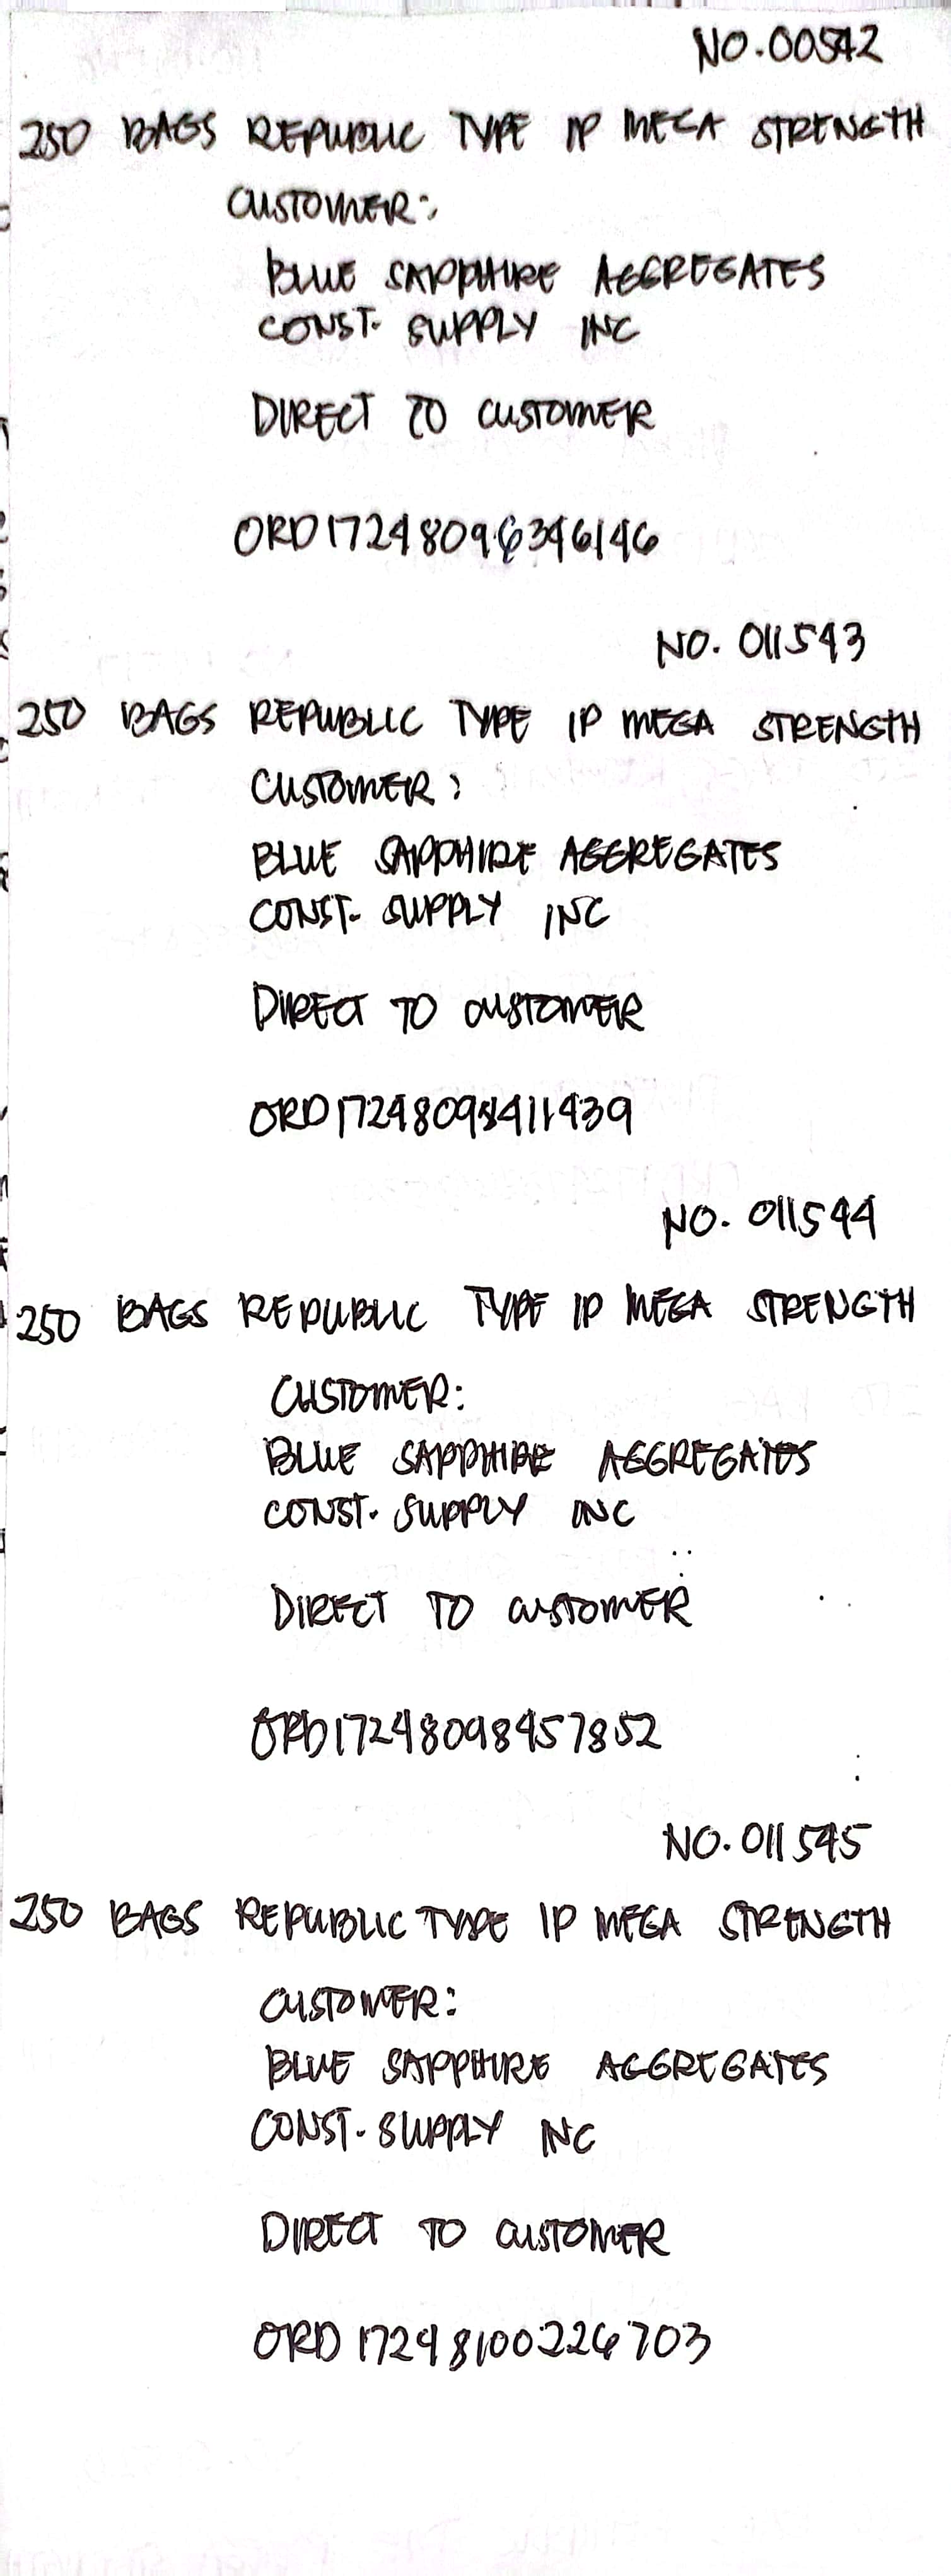 NO. 00542
250 BAGS REPUBLIC TYPE IP MEGA STRENGTH
CUSTOMER:
BLUE SAPPHIRE AGGREGATES
CONST. SUPPLY INC
DIRECT TO CUSTOMER
ORD17248096346146
NO. 011543
250 BAGS REPUBLIC TYPE IP MEGA STRENGTH
CUSTOMER:
BLUE SAPPHIRE AGGREGATES
CONST. SUPPLY INC
DIRECT TO CUSTOMER
NO. 011544
250 BAGS REPUBLIC TYPE IP MEGA STRENGTH
CUSTOMER:
BLUE SAPPHIRE AGGREGATES
CONST. SUPPLY INC
DIRECT TO CUSTOMER
ORD17248098457852
NO. 011545
250 BAGS REPUBLIC TYPE IP MEGA STRENGTH
CUSTOMER:
BLUE SAPPHIRE AGGREGATES
CONST. SUPPLY INC
DIRECT TO CUSTOMER
ORD 17248100226703